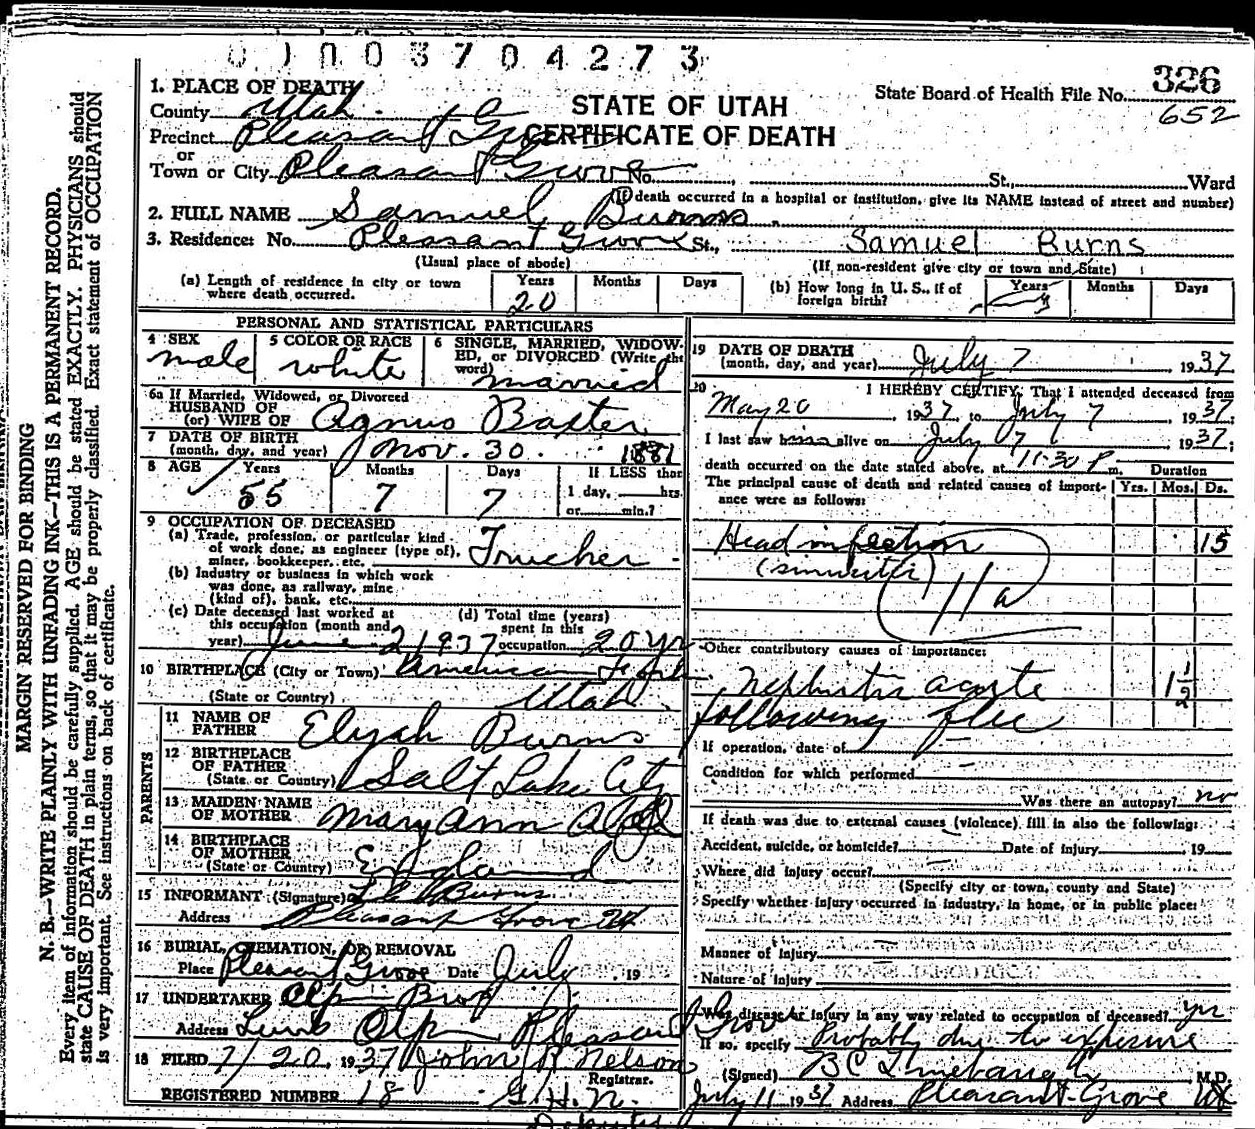 01003704273
326
State Board of Health File No.
652
STATE OF UTAH
CERTIFICATE OF DEATH
1. PLACE OF DEATH
County Utah
Precinct Pleasant Grove
or
Town or City Pleasant Grove No. St., Ward
(If death occurred in a hospital or institution, give its NAME instead of street and number)
2. FULL NAME Samuel Burns
3. Residence: No. Pleasant Grove St., Samuel Burns
(Usual place of abode) (If non-resident give city or town and State)
(a) Length of residence in city or town where death occurred. Years 20 Months Days
(b) How long in U. S., if of foreign birth? Years Months Days
PERSONAL AND STATISTICAL PARTICULARS
4 SEX male
5 COLOR OR RACE white
6 SINGLE, MARRIED, WIDOWED, or DIVORCED (Write the word) married
6a If Married, Widowed, or Divorced
HUSBAND OF
(or) WIFE OF Agnus Baxter
7 DATE OF BIRTH
(month, day, and year) Nov. 30. 1881
8 AGE Years 55 Months 7 Days 7 If LESS than 1 day, hrs. or min.?
9 OCCUPATION OF DECEASED
(a) Trade, profession, or particular kind of work done, as engineer (type of), miner, bookkeeper, etc. Trucker
(b) Industry or business in which work was done, as railway, mine (kind of), bank, etc.
(c) Date deceased last worked at this occupation (month and year) June 2 1937
(d) Total time (years) spent in this occupation 20 yr
10 BIRTHPLACE (City or Town) American Fork
(State or Country) Utah
PARENTS
11 NAME OF FATHER Elijah Burns
12 BIRTHPLACE OF FATHER (State or Country) Salt Lake City
13 MAIDEN NAME OF MOTHER Mary Ann
14 BIRTHPLACE OF MOTHER (State or Country) England
15 INFORMANT (Signature) Burns
Address Pleasant Grove Ut
16 BURIAL, CREMATION, OR REMOVAL
Place Pleasant Grove Date July 19
17 UNDERTAKER Olpin Bros
Address Lewis Olpin Pleasant Grove
18 FILED 7/20 1937 John R Nelson
Registrar.
REGISTERED NUMBER 18 G. H. N.
Deputy
19 DATE OF DEATH
(month, day, and year) July 7 1937
20 I HEREBY CERTIFY, That I attended deceased from
May 20 1937 to July 7 1937;
I last saw him alive on July 7 1937;
death occurred on the date stated above, at 11:30 P. m. Duration
The principal cause of death and related causes of importance were as follows: Yrs. Mos. Ds.
Head infection 15
(sinusitis)
11a
Other contributory causes of importance:
Nephritis acute 1 1/2
following flu
If operation, date of
Condition for which performed
Was there an autopsy? no
If death was due to external causes (violence) fill in also the following:
Accident, suicide, or homicide? Date of injury , 19
Where did injury occur?
(Specify city or town, county and State)
Specify whether injury occurred in industry, in home, or in public place:
Manner of Injury
Nature of Injury
Was disease or injury in any way related to occupation of deceased? yes
If so, specify Probably due to exposure
(Signed) B C Linebaugh M.D.
July 11 1937 Address Pleasant Grove Ut
MARGIN RESERVED FOR BINDING
N. B.—WRITE PLAINLY WITH UNFADING INK—THIS IS A PERMANENT RECORD.
Every item of information should be carefully supplied. AGE should be stated EXACTLY. PHYSICIANS should
state CAUSE OF DEATH in plain terms, so that it may be properly classified. Exact statement of OCCUPATION
is very important. See instructions on back of certificate.